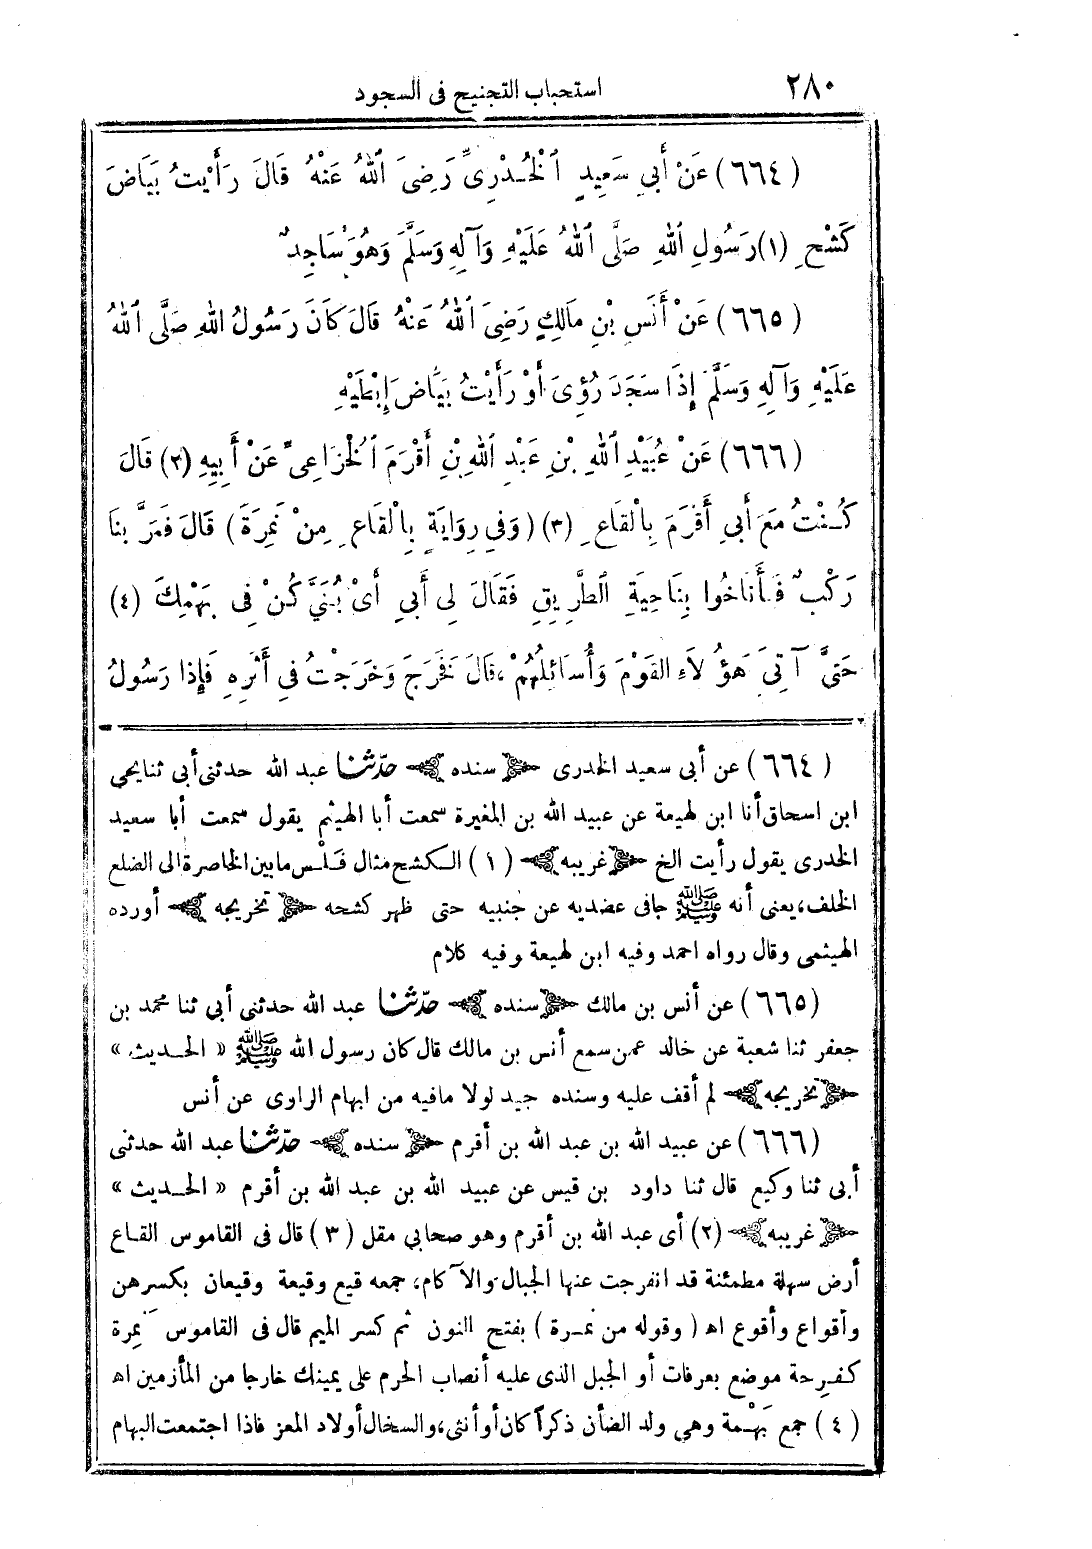 ٢٨٠ استحباب التجنيح فى السجود
(٦٦٤) عَنْ أَبِي سَعِيدٍ ٱلْخُدْرِىِّ رَضِىَ ٱللهُ عَنْهُ قَالَ رَأَيْتُ بَيَاضَ
كَشْحِ (١) رَسُولِ ٱللهِ صَلَّى ٱللهُ عَلَيْهِ وَآلِهِ وَسَلَّمَ وَهُوَ سَاجِدٌ
(٦٦٥) عَنْ أَنَسِ بْنِ مَالِكٍ رَضِىَ ٱللهُ عَنْهُ قَالَ كَانَ رَسُولُ ٱللهِ صَلَّى ٱللهُ
عَلَيْهِ وَآلِهِ وَسَلَّمَ إِذَا سَجَدَ رُؤِىَ أَوْ رَأَيْتُ بَيَاضَ إِبْطَيْهِ
(٦٦٦) عَنْ عُبَيْدِ ٱللهِ بْنِ عَبْدِ ٱللهِ بْنِ أَقْرَمَ ٱلْخُزَاعِىِّ عَنْ أَبِيهِ (٢) قَالَ
كُنْتُ مَعَ أَبِي أَقْرَمَ بِالْقَاعِ (٣) (وَفِي رِوَايَةٍ بِالْقَاعِ مِنْ نَمِرَةَ) قَالَ فَمَرَّ بِنَا
رَكْبٌ فَأَنَاخُوا بِنَاحِيَةِ ٱلطَّرِيقِ فَقَالَ لِى أَبِي أَىْ بُنَيَّ كُنْ فِى بَهْمِكَ (٤)
حَتَّى آتِىَ هَؤُلاَءِ القَوْمَ وَأُسَائِلُهُمْ، قَالَ فَخَرَجَ وَخَرَجْتُ فِي أَثَرِهِ فَإِذا رَسُولُ
(٦٦٤) عن أبى سعيد الخدرى ﴿سنده﴾ حدّثنا عبد الله حدثنى أبى ثنا يحيى
ابن اسحاق أنا ابن لهيعة عن عبيد الله بن المغيرة سمعت أبا الهيثم يقول سمعت أبا سعيد
الخدرى يقول رأيت الخ ﴿غريبه﴾ (١) الكشح مثال فَلْس مابين الخاصرة الى الضلع
الخلف، يعنى أنه ﷺ جافى عضديه عن جنبيه حتى ظهر كشحه ﴿تخريجه﴾ أورده
الهيثمى وقال رواه احمد وفيه ابن لهيعة وفيه كلام
(٦٦٥) عن أنس بن مالك ﴿سنده﴾ حدّثنا عبد الله حدثنى أبى ثنا محمد بن
جعفر ثنا شعبة عن خالد عمن سمع أنس بن مالك قال كان رسول الله ﷺ « الحديث »
﴿تخريجه﴾ لم أقف عليه وسنده جيد لولا مافيه من ابهام الراوى عن أنس
(٦٦٦) عن عبيد الله بن عبد الله بن أقرم ﴿سنده﴾ حدّثنا عبد الله حدثنى
أبى ثنا وكيع قال ثنا داود بن قيس عن عبيد الله بن عبد الله بن أقرم « الحديث »
﴿غريبه﴾ (٢) أى عبد الله بن أقرم وهو صحابى مقل (٣) قال فى القاموس القاع
أرض سهلة مطمئنة قد انفرجت عنها الجبال والآكام، جمعه قيع وقيعة وقيعان بكسرهن
وأقواع وأقوع اه (وقوله من نمرة) بفتح النون ثم كسر الميم قال فى القاموس نَمِرة
كفرحة موضع بعرفات أو الجبل الذى عليه أنصاب الحرم على يمينك خارجا من المأزمين اه
(٤) جمع بَهْمة وهي ولد الضأن ذكراً كان أو أنثى، والسخال أولاد المعز فاذا اجتمعت البهام